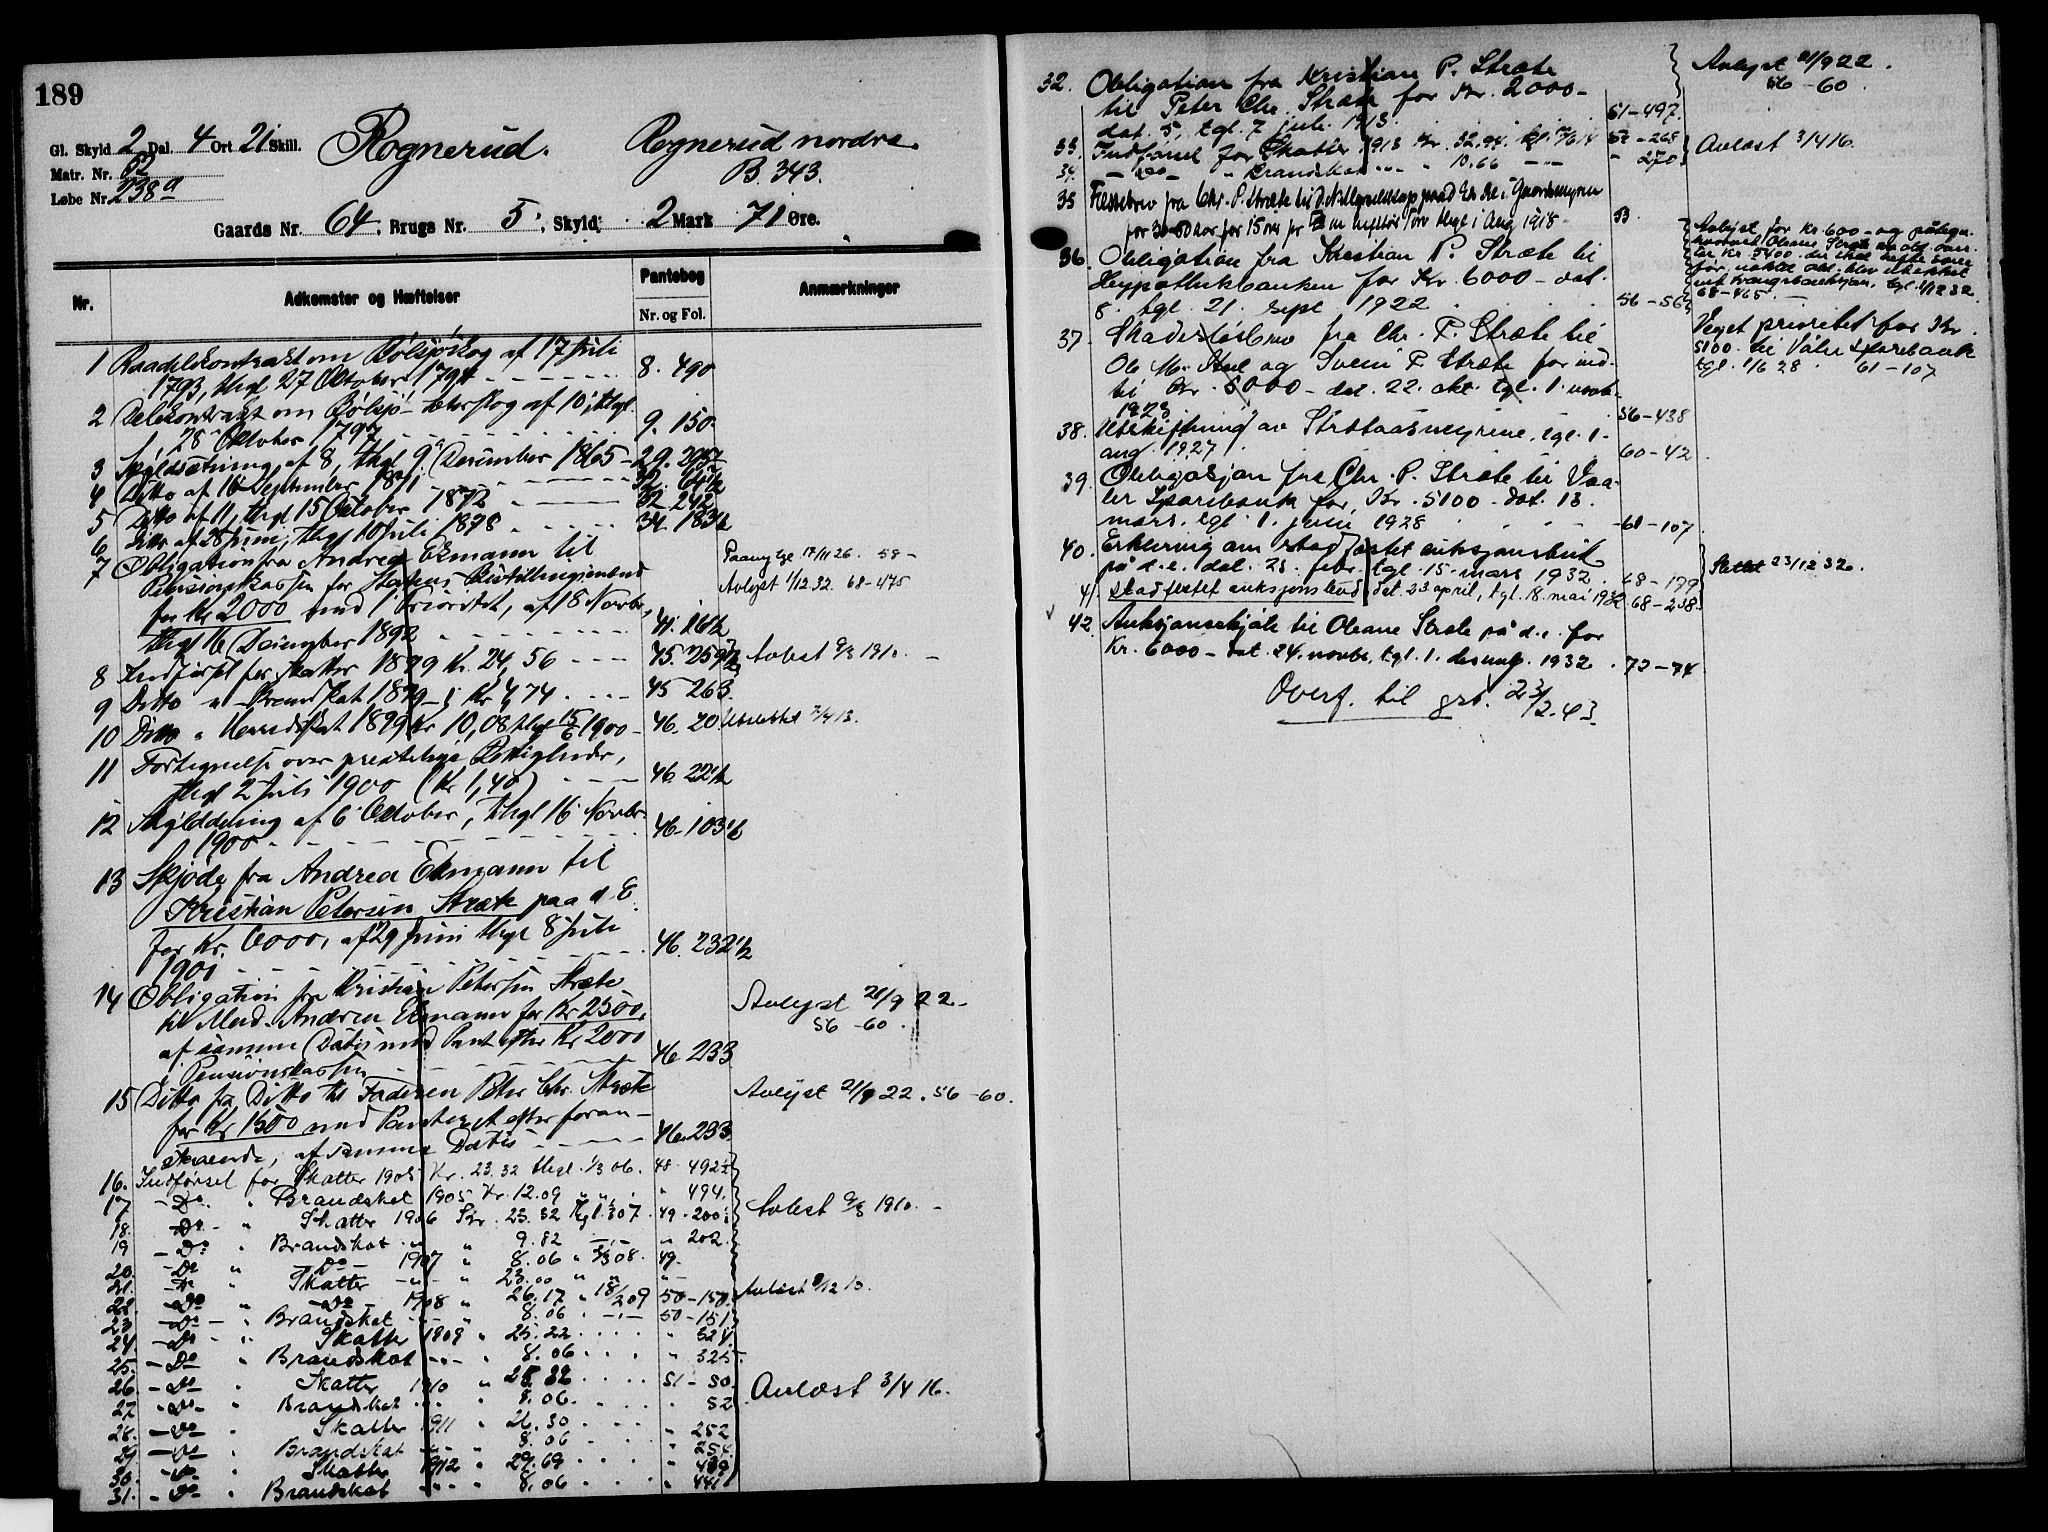 189
Gl. Skyld 2 Dal. 4 Ort 21 Skill.
Rognerud.
Rognerud nordre.
B. 343.
Matr. Nr. 82
Løbe Nr. 238a
Gaards Nr. 64, Brugs Nr. 5, Skyld: 2 Mark 71 Øre.
Nr.
Adkomster og Hæftelser
Pantebog
Nr. og Fol.
Anmærkninger
1 Raadelskontrakt om Rølsjøskog af 17 Juli
1793, thgl. 27 Oktober 1794 8. 490
2 Delekontrakt om Rølsjø- skog af 10, thgl.
28 Oktober 1797 9. 150
3 Skyldsætning af 8, thgl 9 December 1865 29.
4 Ditto af 16 September 1871 32.
5 Ditto af 11, thgl 15 Oktober 1872 32 242
6 Ditto af 28 Juni, thgl 10 Juli 1878 34. 183 1/2
7 Obligation fra Andrea Ekmann til
Pensionskassen for Statens
for Kr 2000 med 1 Prioritet, af 18 Novbr,
thgl 16 December 1892 41. 16 1/2
Paany lyst 17/11 26. 58-
Avlyst 1/12.32. 68-475
8 Indførsel for Skatter 1899 Kr. 24,56 45. 259 1/2
Avlest 9/3 1910.
9 Ditto " Brandskat 1899 - Kr 4,74 45 263
10 Ditto " Herredskat 1899 Kr 10,08 thgl 15/6 1900 46. 20 Udslettet 3/4 13.
11 Fortegnelse over prestelige Rettigheder,
thgl 2 Juli 1900 (Kr 1,40) 46. 22 1/2
12 Skylddeling af 6 Oktober, thgl 16 Novbr
1900 46. 103 1/2
13 Skjøde fra Andrea Ekmann til
Kristian Petersen Stræte paa d. E.
for Kr. 6000, af 29 Juni thgl 8 Juli
1901 46. 232 1/2
14 Obligation fra Kristian Petersen Stræte
til Mad. Andrea Ekmann for Kr 2500,
af samme Datis med Pant efter Kr 2000
i Pensionskassen 46. 233
Avlyst 21/9 22.
56 - 60.
15 Ditto fra Ditto til Faderen Peter Chr. Stræte
for Kr 1500 med Panteret efter foran-
staaende, af samme Datis 46. 233
Avlyst 21/9 22. 56 - 60.
16. Indførsel for Skatter 1905 Kr. 23.32 thgl. 1/3 06. 48. 492 1/2
17 - Do. " Brandskat 1905 Kr. 12.09 " " " 494.
18. - Do - " Skatter 1906 Kr. 23.32 Tgl. 1/3 07. 49. 200
Avlest 9/3 1910.
19 - Do " Brandskat " " 9.82 " 202.
20. - Do " - Do - 1907 " 8.06 " 3/3 08. 49.
21. - Do " Skatter " " 23.00 " "
22. - Do " - Do - 1908 " 26.17 " 18/2 09 50 - 150.
Avlæst 9/12 13.
23 - Do - " Brandskat " " 8.06 50 - 151
24. - Do " Skatter 1909 " 25.22 " 324.
25. - Do " Brandskat " " 8.06 " 325.
26. - Do " Skatter 1910 " 25.32 51 - 50.
Avlæst 3/4 16.
27 - Do - " Brandskat " 8.06. " 52
28. - Do - " Skatter 1911 " 26.30 " 252
29 - Do - " Brandskat " " 8.06 " 254.
30. - Do - " Skatter 1912 " 29.69 " 439
31. - Do " Brandskat " " 8.06 " 441
32. Obligation fra Kristian P. Stræte
til Peter Chr. Stræte for Kr. 2000-
dat. 5, tgl. 7 juli 1913. 51-497.
Avlyst 21/9 22.
56 - 60.
33. Indførsel for Skatter 1913 Kr. 32.94. 52 - 268
34. - Do - " Brandskat " " 10.66 " 270
Avlæst 3/4 16.
35 Fæstebrev fra Chr. P. Stræte til
for 15 aar thgl i Aug 1918 53
36. Obligation fra Kristian P. Stræte til
Hypothekbanken for Kr. 6000- dat.
8. tgl. 21. sept. 1922 56-56
Avlyst for kr. 600- og påtegn.
hvorved Oleane Stræte
ler kr. 5400.
ved tvangsauksjon, tgl. 1/12 32.
68-465.
Veget prioritet for Kr.
5100 til Våler Sparebank
tgl. 1/6 28. 61-107
37. Skadesløsbrev fra Chr. P. Stræte til
Ole M. og P. Stræte for ind-
til Kr. 5000- dat. 22. okt. tgl. 1. novb.
1923 56-438
38. Utskiftning av Strætaasmyrene, tgl. 1.
aug. 1927 60-42
39. Obligasjon fra Chr. P. Stræte til Vaa-
ler Sparebank for Kr. 5100- dat. 13.
mars, tgl. 1. juni 1928 61-107
40. Erklæring om stadfæstet auksjonsbud
på d.e. dat. 25. febr. tgl. 15. mars 1932. 68-179
Slettet 23/12 32.
41. Stadfestet auksjonsbud, dat. 23. april, tgl. 18. mai 1932 68-238.
42. Auksjonsskjøte til Oleane Stræte på d.e. for
Kr. 6000- dat. 24. novbr. tgl. 1. desembr. 1932. 72-74
Overf. til grb. 23/2.43.